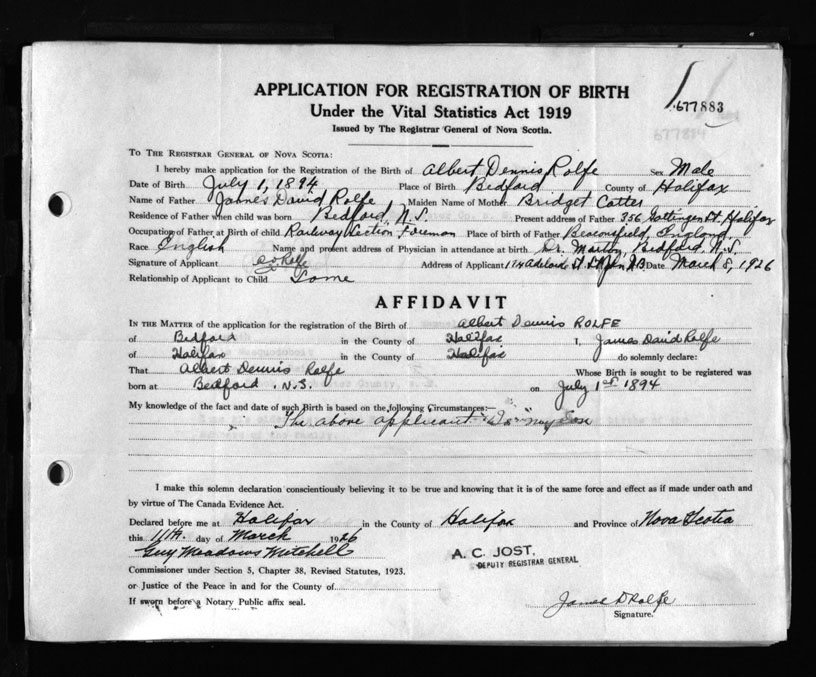 APPLICATION FOR REGISTRATION OF BIRTH
Under the Vital Statistics Act 1919
Issued by The Registrar General of Nova Scotia.
677883
677884
To The Registrar General of Nova Scotia:
I hereby make application for the Registration of the Birth of Albert Dennis Rolfe Sex Male
Date of Birth July 1, 1894 Place of Birth Bedford County of Halifax
Name of Father James David Rolfe Maiden Name of Mother Bridget Cotter
Residence of Father when child was born Bedford, N.S. Present address of Father 356 Gottingen St. Halifax
Occupation of Father at Birth of child Railway Section Foreman Place of birth of Father Beaconsfield, England
Race English Name and present address of Physician in attendance at birth Dr. Marton, Bedford, N.S.
Signature of Applicant Rolfe Address of Applicant 174 Adelaide St. St John N.B Date March 8, 1926
Relationship of Applicant to Child Same
AFFIDAVIT
In the Matter of the application for the registration of the Birth of Albert Dennis ROLFE
of Bedford in the County of Halifax I, James David Rolfe
of Halifax in the County of Halifax do solemnly declare:
That Albert Dennis Rolfe Whose Birth is sought to be registered was
born at Bedford. N.S. on July 1st 1894
My knowledge of the fact and date of such Birth is based on the following Circumstances:—
The above applicant Is my Son
I make this solemn declaration conscientiously believing it to be true and knowing that it is of the same force and effect as if made under oath and
by virtue of The Canada Evidence Act.
Declared before me at Halifax in the County of Halifax and Province of Nova Scotia
this 11th. day of March 1926
Guy Meadows Mitchell
A. C. JOST,
DEPUTY REGISTRAR GENERAL
Commissioner under Section 5, Chapter 38, Revised Statutes, 1923.
or Justice of the Peace in and for the County of
If sworn before a Notary Public affix seal.
James D Rolfe
Signature.